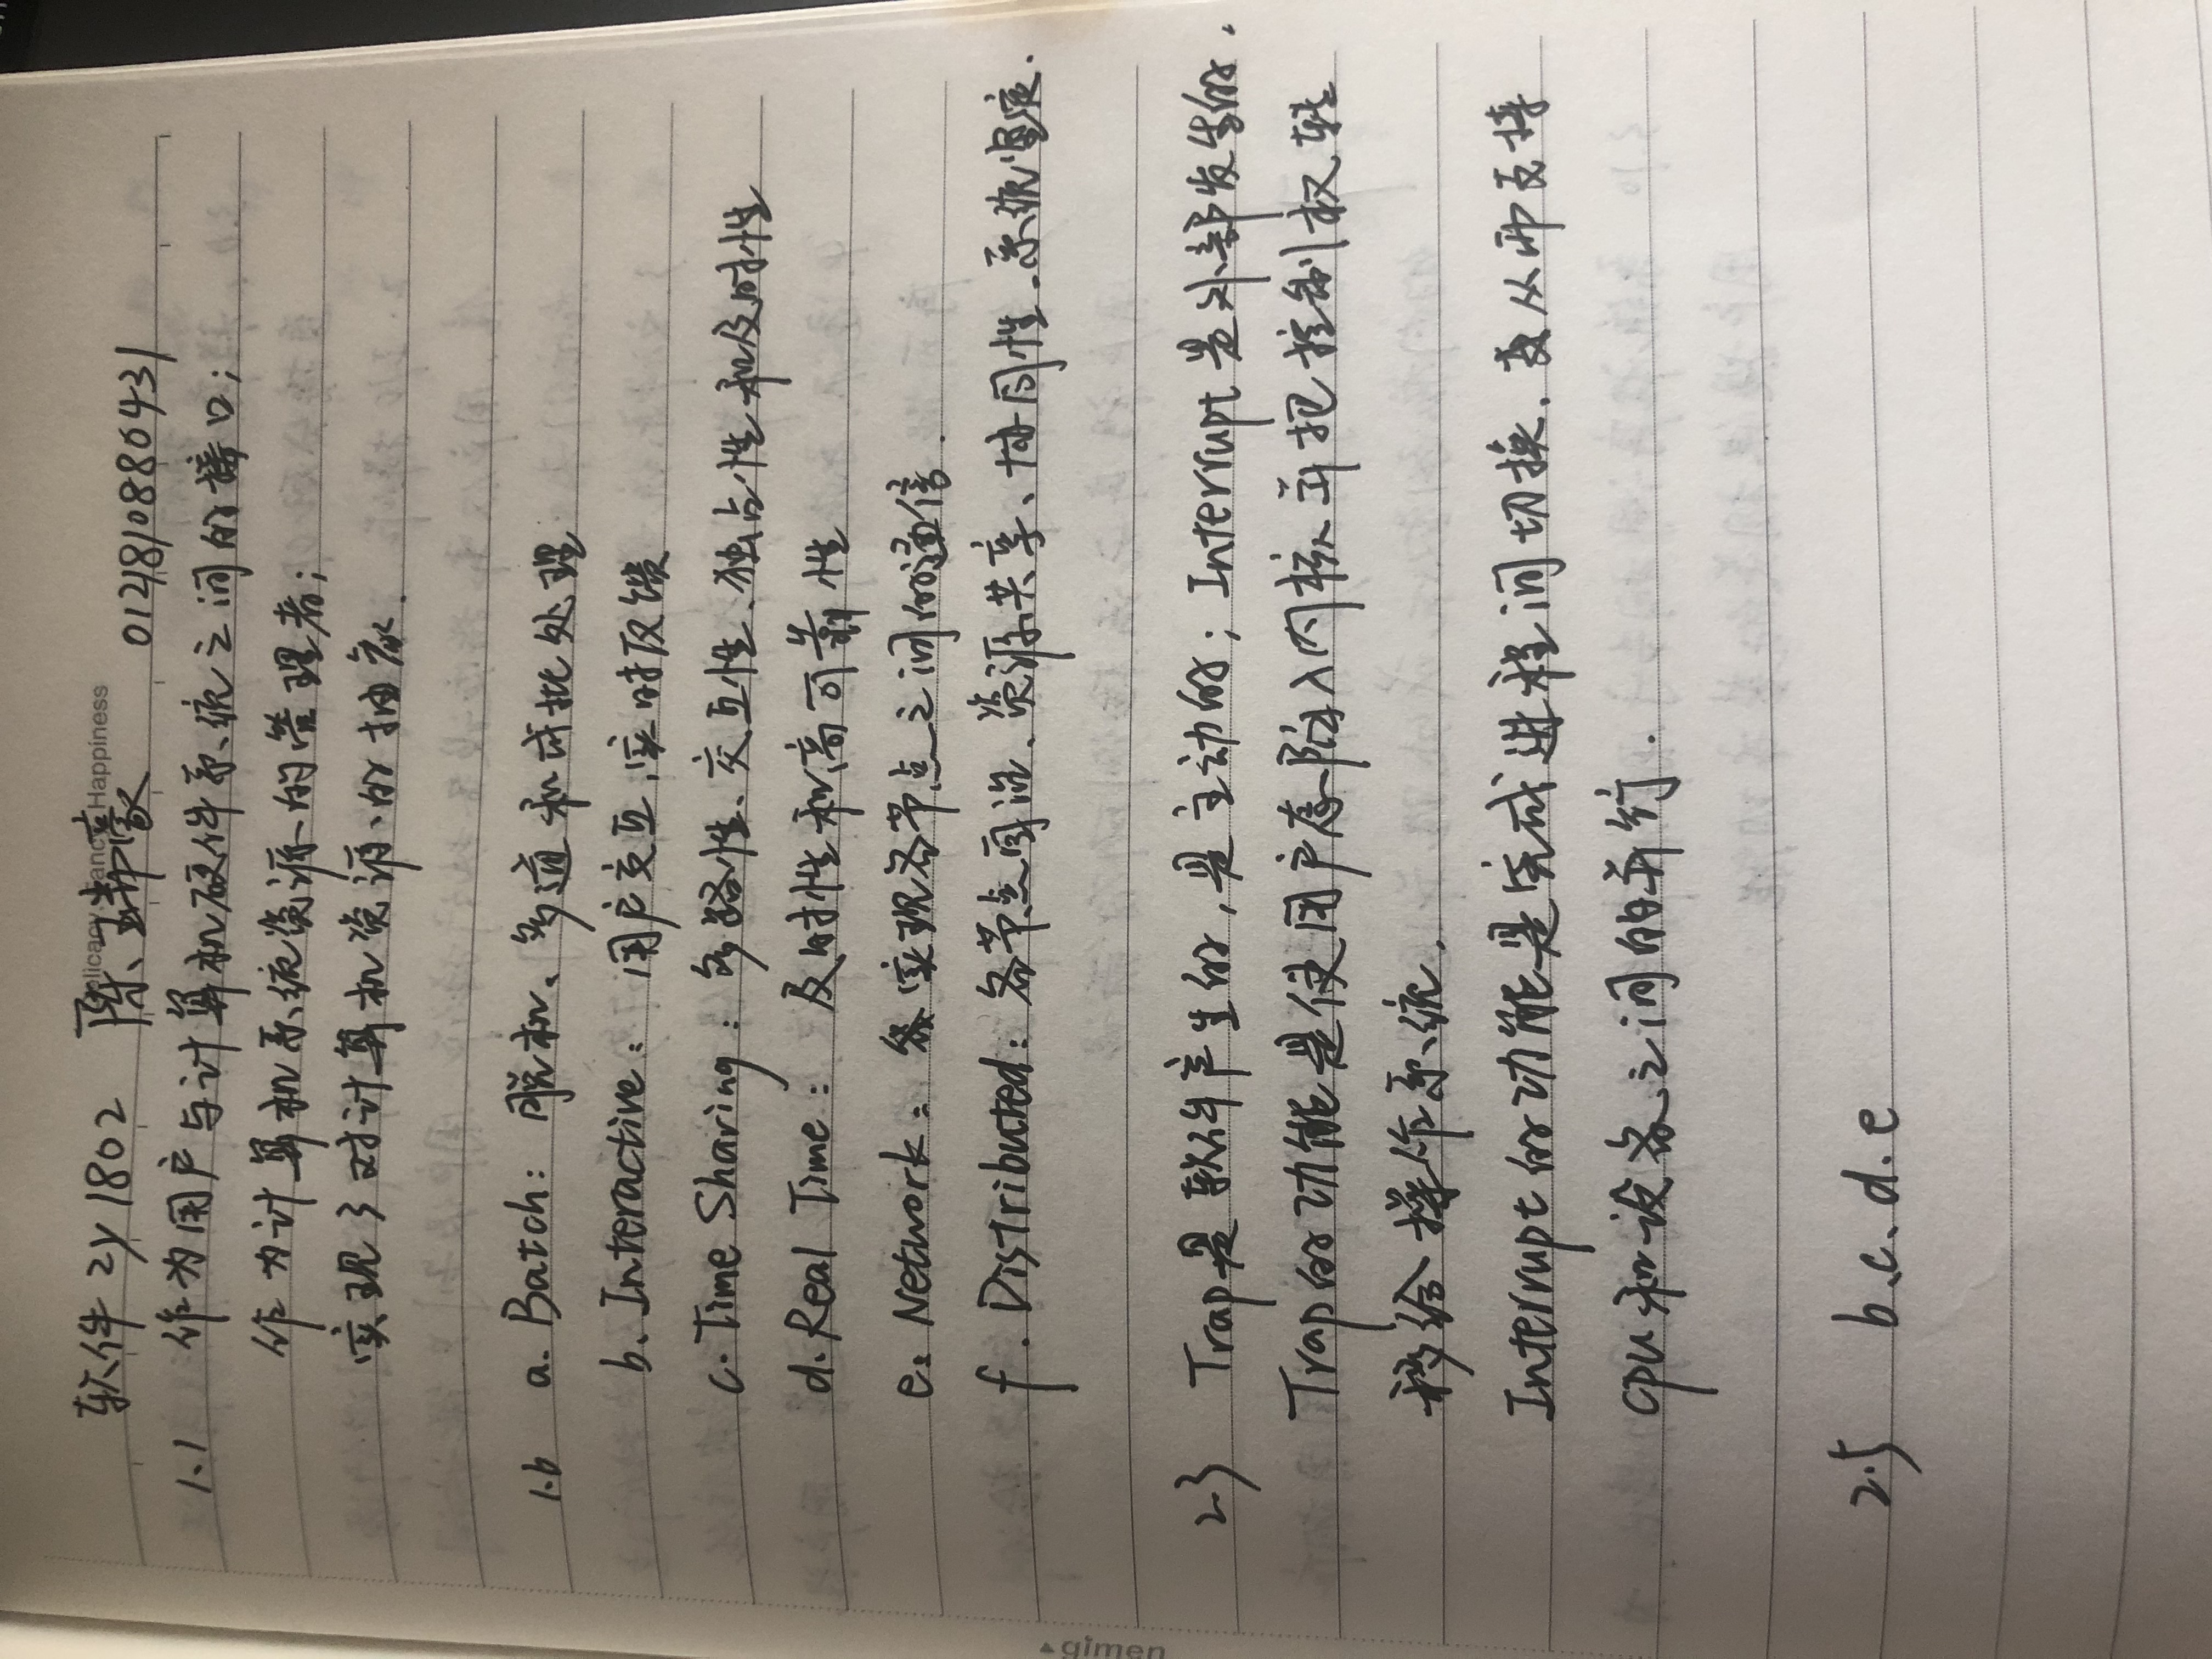 Delicacy. Fancy. Happiness
软件zy1802 陈 豪 0121810880431
1.1 作为用户与计算机硬件系统之间的接口;
作为计算机系统资源的管理者;
实现了对计算机资源的抽象.
1.6 a. Batch: 脱机、多道和成批处理
b. Interactive: 用户交互,实时反馈
c. Time Sharing: 多路性、交互性、独占性和及时性
d. Real Time: 及时性和高可靠性
e. Network: 实现各节点之间的通信.
f. Distributed: 各节点自治、资源共享、协同性、系统坚定.
2.3 Trap是软件产生的,是主动的; Interrupt是外部发生的.
Trap的功能是使用户态陷入内核并把控制权转
移给操作系统.
Interrupt的功能是完成进程间切换. 从而支持
cpu和设备之间的并行.
2.5 b、c、d. e
gimen